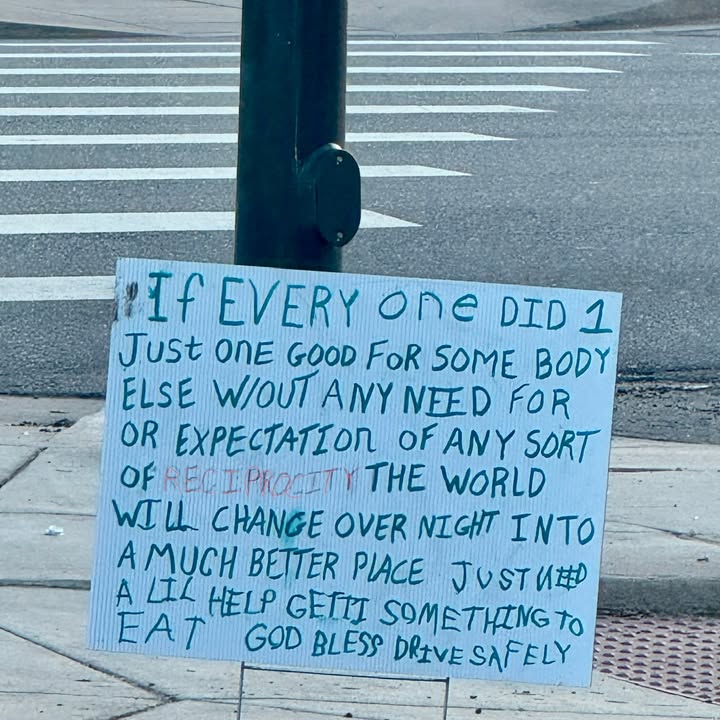 If EVERY one DID 1
JUST ONE GOOD FOR SOME BODY
ELSE W/OUT ANY NEED FOR
OR EXPECTATION OF ANY SORT
OF RECIPROCITY THE WORLD
WILL CHANGE OVER NIGHT INTO
A MUCH BETTER PLACE JUST NEED
A LIL HELP GETTI SOMETHING TO
EAT GOD BLESS DRIVE SAFELY